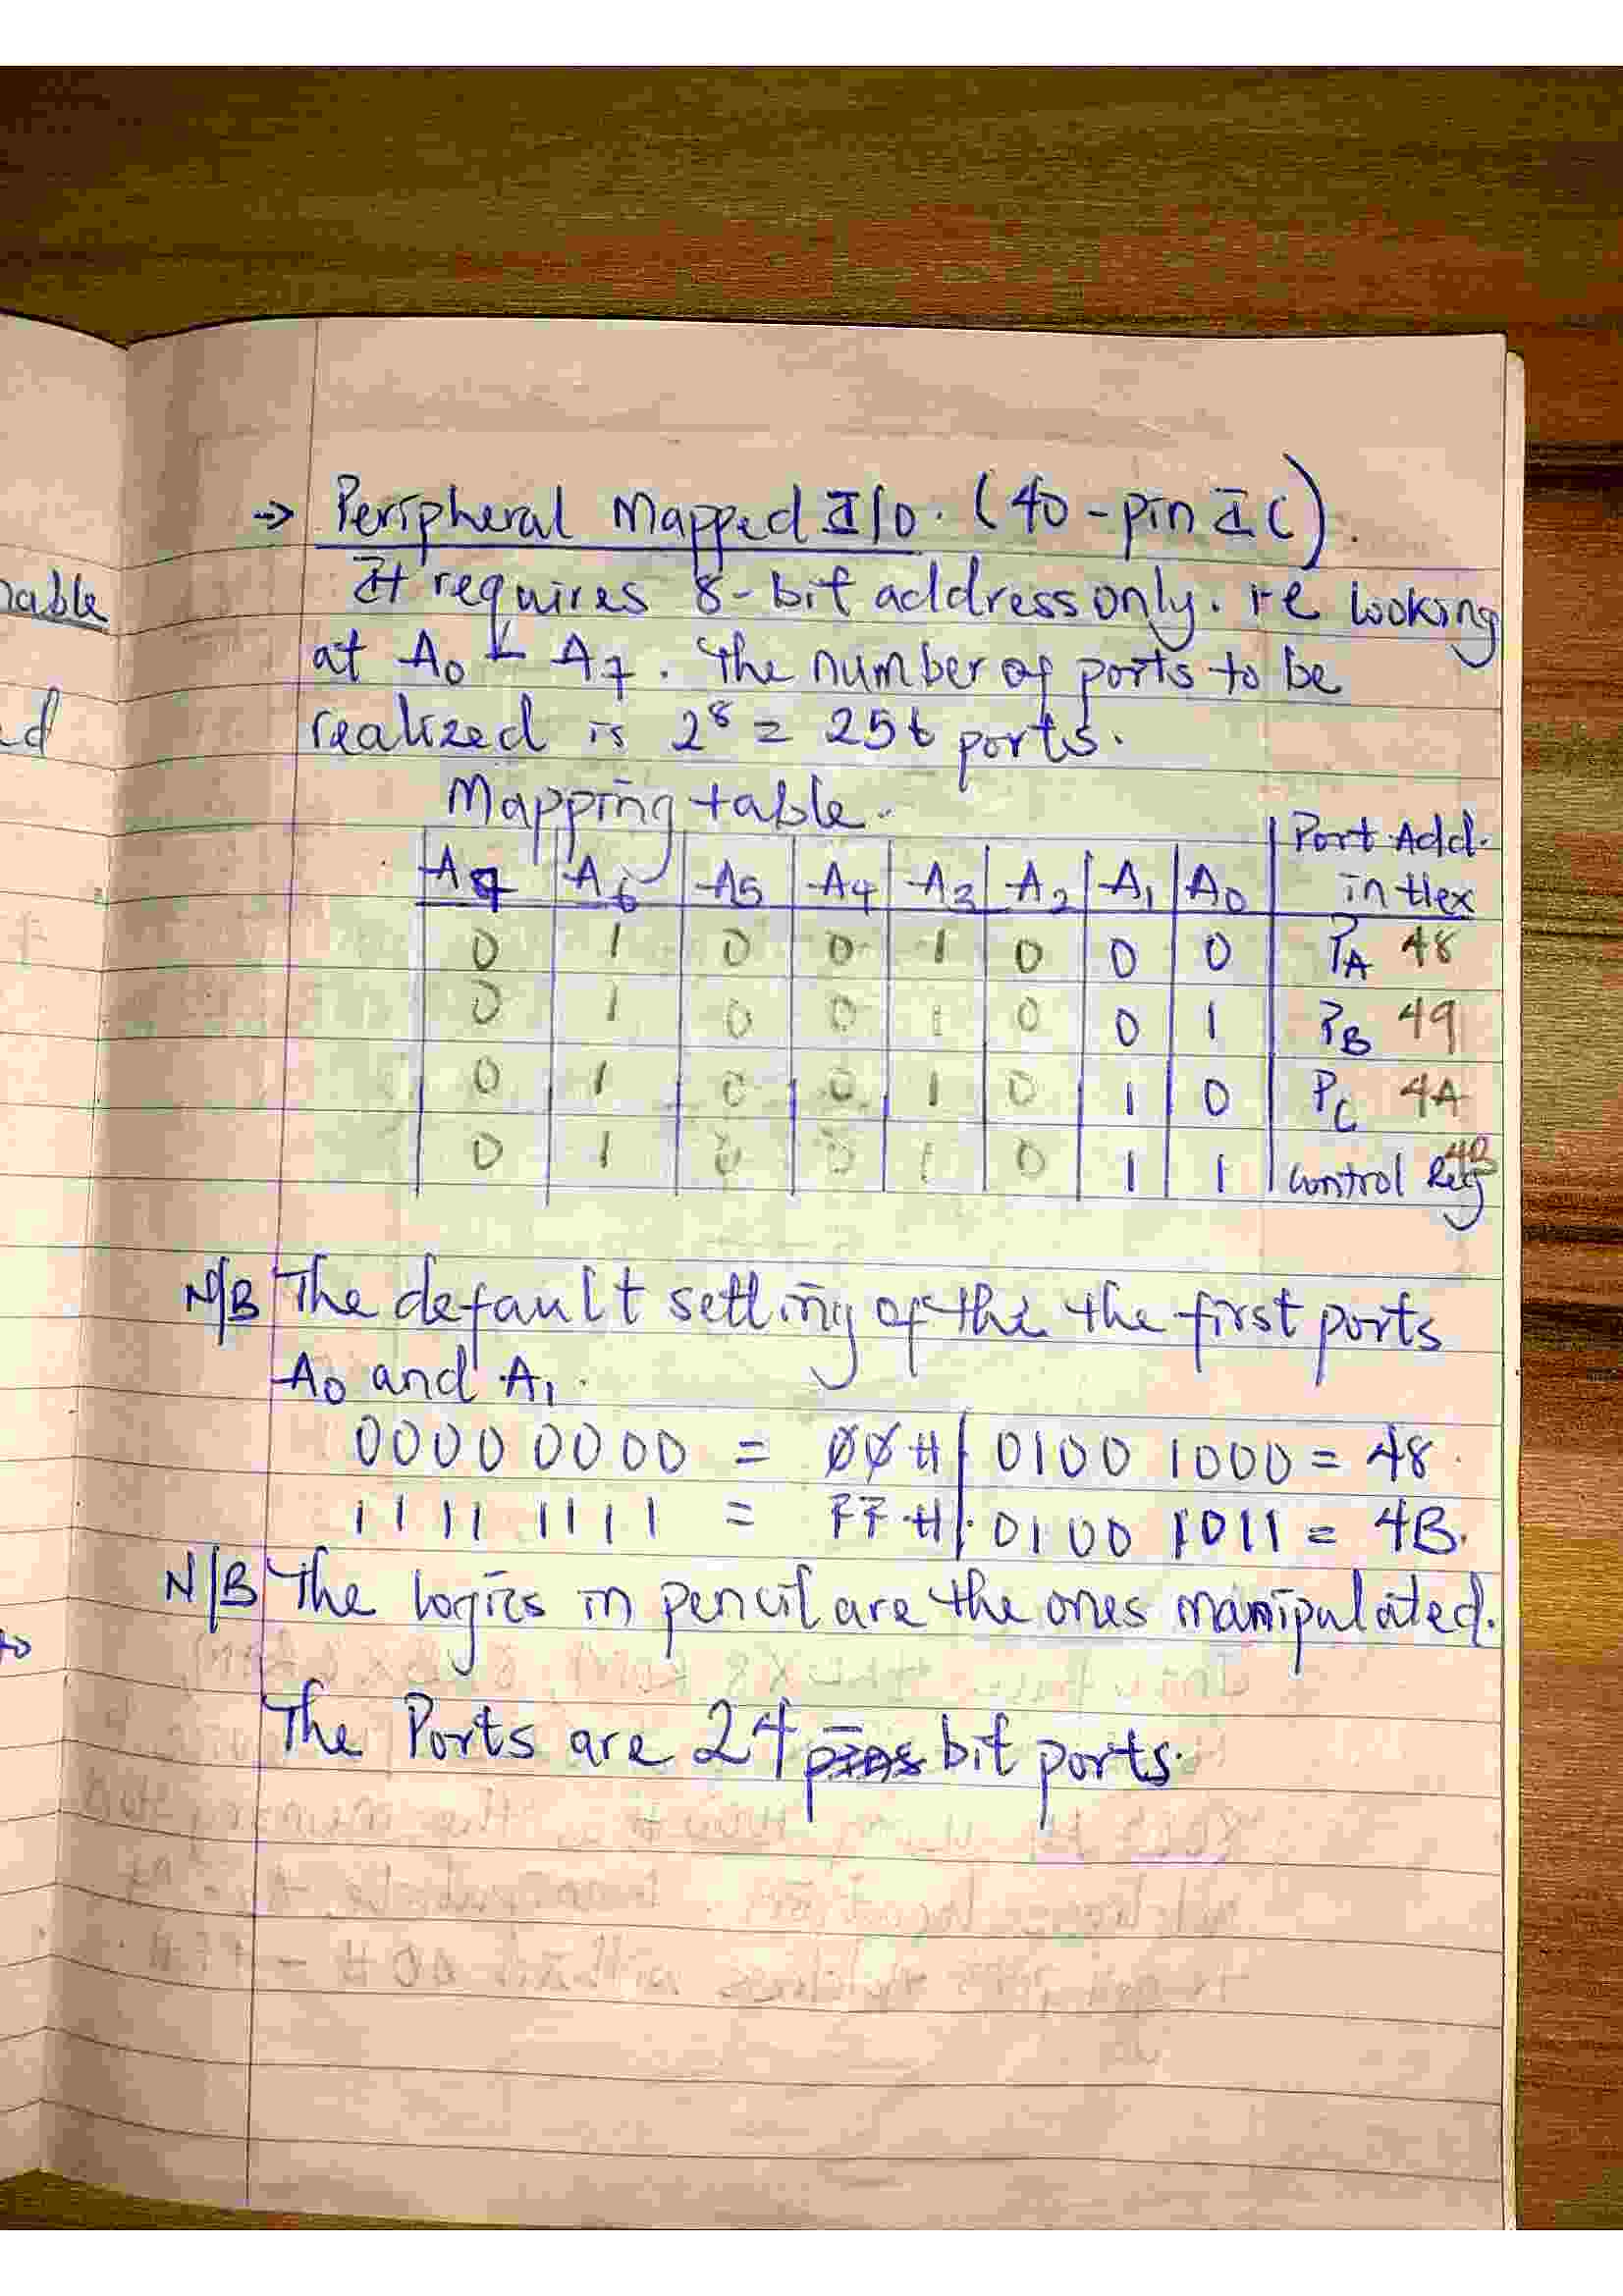 → Peripheral Mapped I/O. (40-pin IC).
It requires 8-bit address only. ie looking
at A0 - A7. The number of ports to be
realized is 2^8 = 256 ports.
Mapping table.
A7 A6 A5 A4 A3 A2 A1 A0 Port Add. in Hex
0 1 0 0 1 0 0 0 PA 48
0 1 0 0 1 0 0 1 PB 49
0 1 0 0 1 0 1 0 PC 4A
0 1 0 0 1 0 1 1 control Reg 4B
N/B The default setting of the the first ports
A0 and A1.
0000 0000 = 00H 0100 1000 = 48.
1111 1111 = FFH. 0100 1011 = 4B.
N/B The logics in pencil are the ones manipulated.
The Ports are 24 pins bit ports.
nable
to